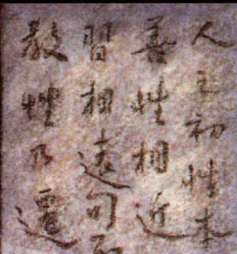 人之初性本
善性相近
習相遠句不
教性乃遷